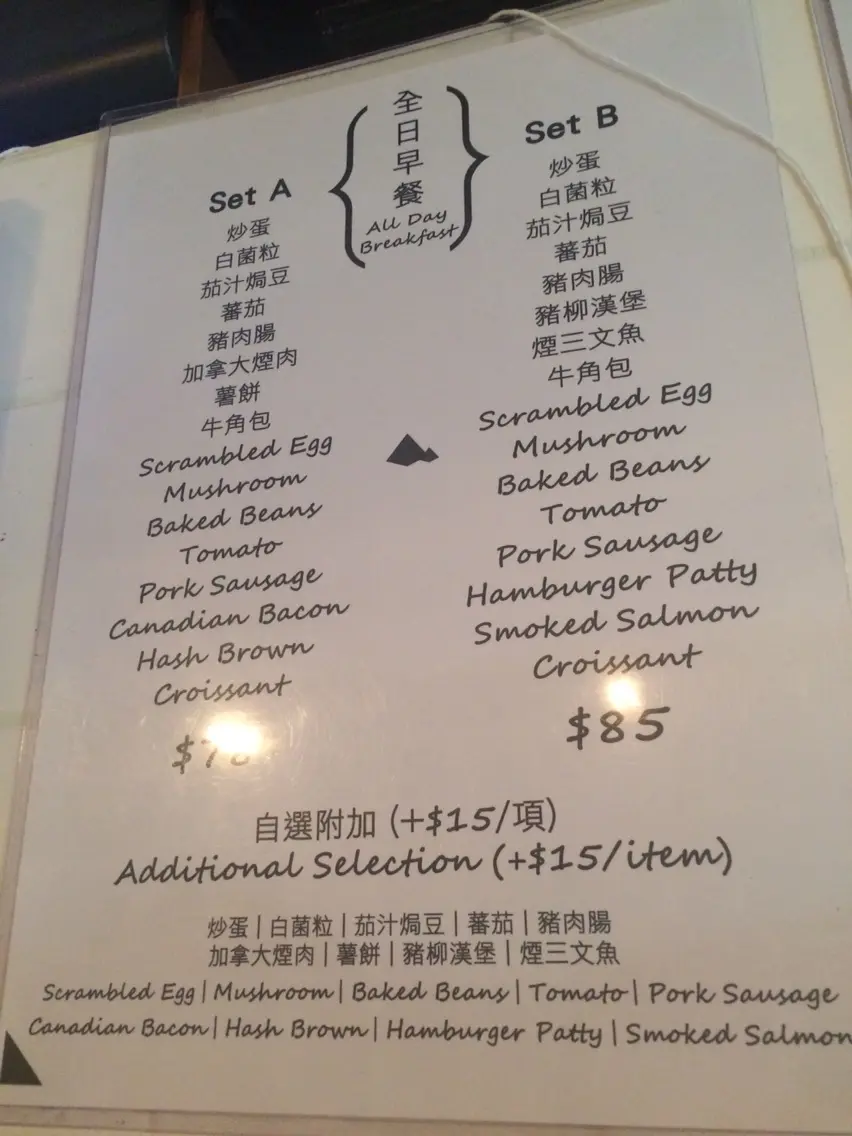 全日早餐
All Day
Breakfast
Set A
炒蛋
白菌粒
茄汁焗豆
蕃茄
豬肉腸
加拿大煙肉
薯餅
牛角包
Scrambled Egg
Mushroom
Baked Beans
Tomato
Pork Sausage
Canadian Bacon
Hash Brown
Croissant
Set B
炒蛋
白菌粒
茄汁焗豆
蕃茄
豬肉腸
豬柳漢堡
煙三文魚
牛角包
Scrambled Egg
Mushroom
Baked Beans
Tomato
Pork Sausage
Hamburger Patty
Smoked Salmon
Croissant
$85
自選附加 (+$15/項)
Additional Selection (+$15/item)
炒蛋 | 白菌粒 | 茄汁焗豆 | 蕃茄 | 豬肉腸
加拿大煙肉 | 薯餅 | 豬柳漢堡 | 煙三文魚
Scrambled Egg | Mushroom | Baked Beans | Tomato | Pork Sausage
Canadian Bacon | Hash Brown | Hamburger Patty | Smoked Salmon